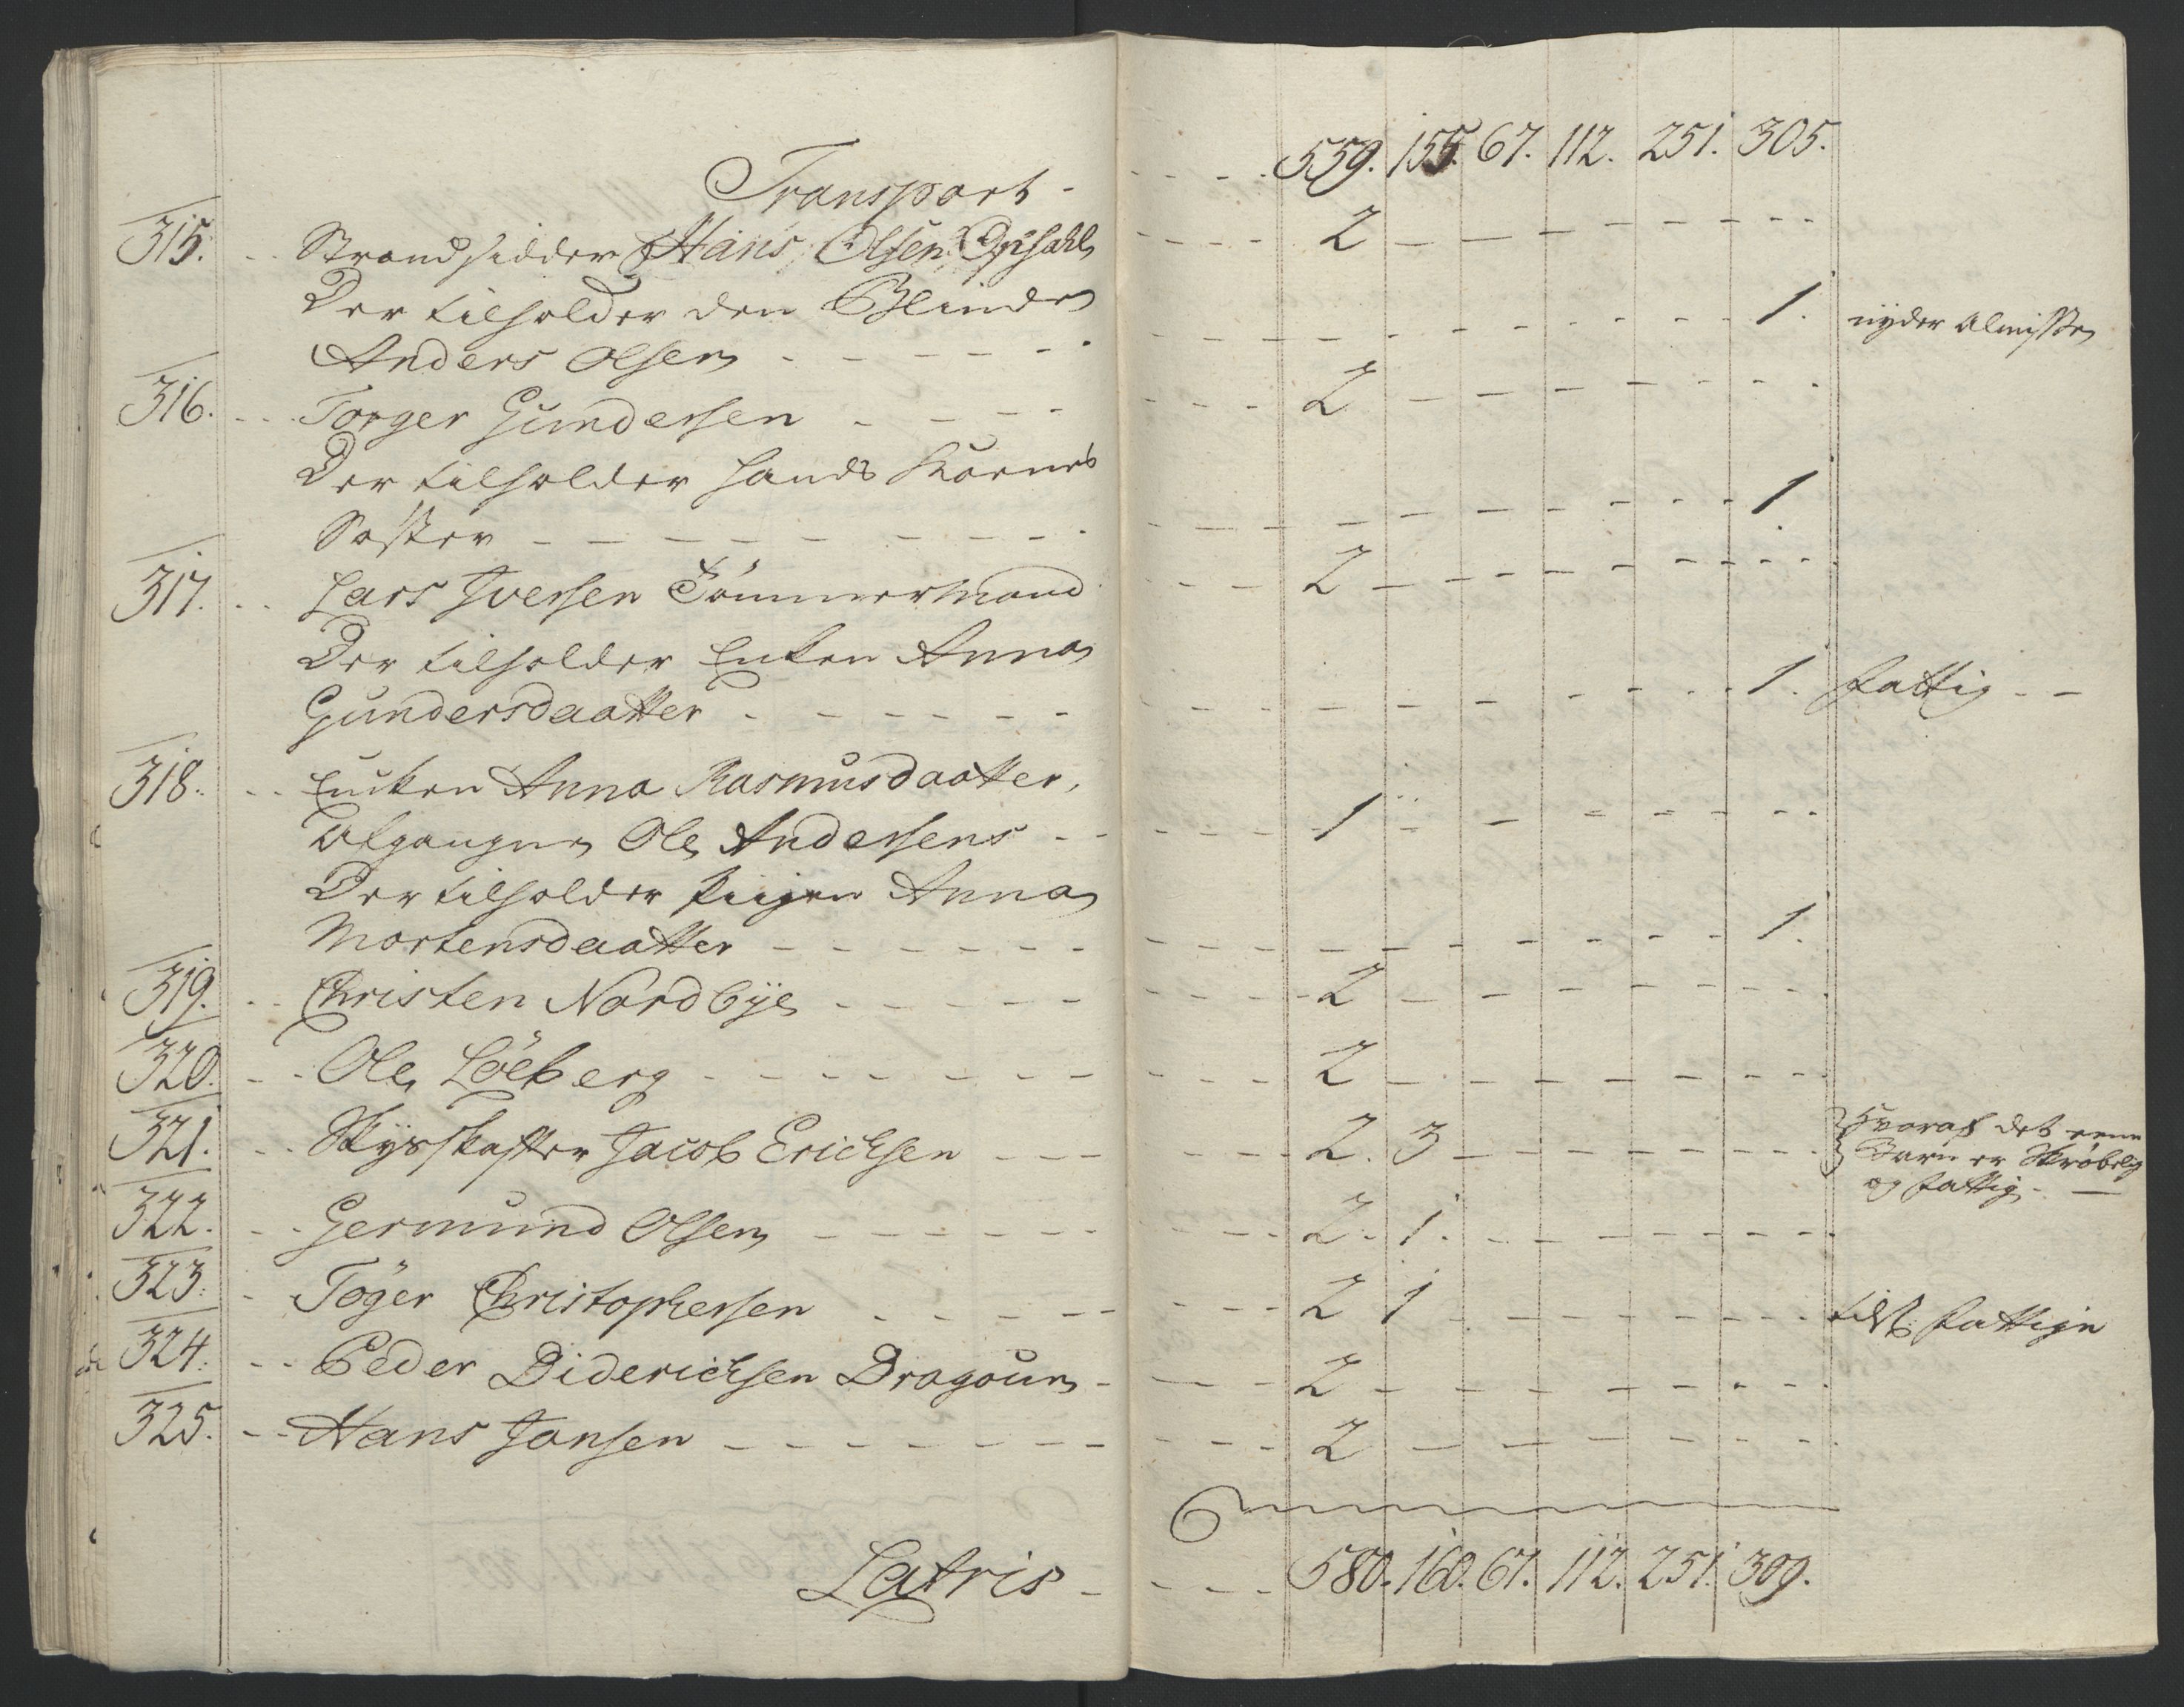 Transport - - - - - 559. 155. 67. 112. 251. 305.
315. - - Strandsidder Hans Olsen Opsahl - - - - 2 - - - - - - - -
Der tilholder den Blinde
Anders Olsen - - - - - - - - - - - - - - 1. nyder Almisse
316. - - Torger Gundersen - - - - - - - 2 - - - - - - -
Der tilholder hands Kones
Søster - - - - - - - - - - - - - - - - 1
317. - - Lars Iversen Tömmermand - - - 2 - - - - - - - -
Der tilholder Enken Anna
Gundersdaatter - - - - - - - - - - - - - 1. fattig - -
318. - - Enken Anna Rasmusdaatter,
Afgangne Ole Andersens - - - - - 1 - - - - - - -
Der tilholder Piigen Anna
Mortensdaatter - - - - - - - - - - - - - 1.
319. - - Christen Nordbye - - - - - - - - - 2 - - - - - - -
320. - - Ole Löeberg - - - - - - - - - - 2 - - - - - - -
321. - - Skÿsskaffer Jacob Erichsen - - - - - - 2. 3 - - - - - - - Hvoraf det eene
Barn er Skrøbelig
og fattig - -
322. - - Germund Olsen - - - - - - - - - 2. 1. - - - - - - -
323. - Töger Christophersen - - - - - - - - 2 1 - - - - - - fattige
324. - - Peder Diderichsen Dragoun - - - - 2 - - - - - - -
325. - - Hans Jansen - - - - - - - - - - 2 - - - - - -
Latris - - - - - 580. 160. 67. 112. 251. 309.